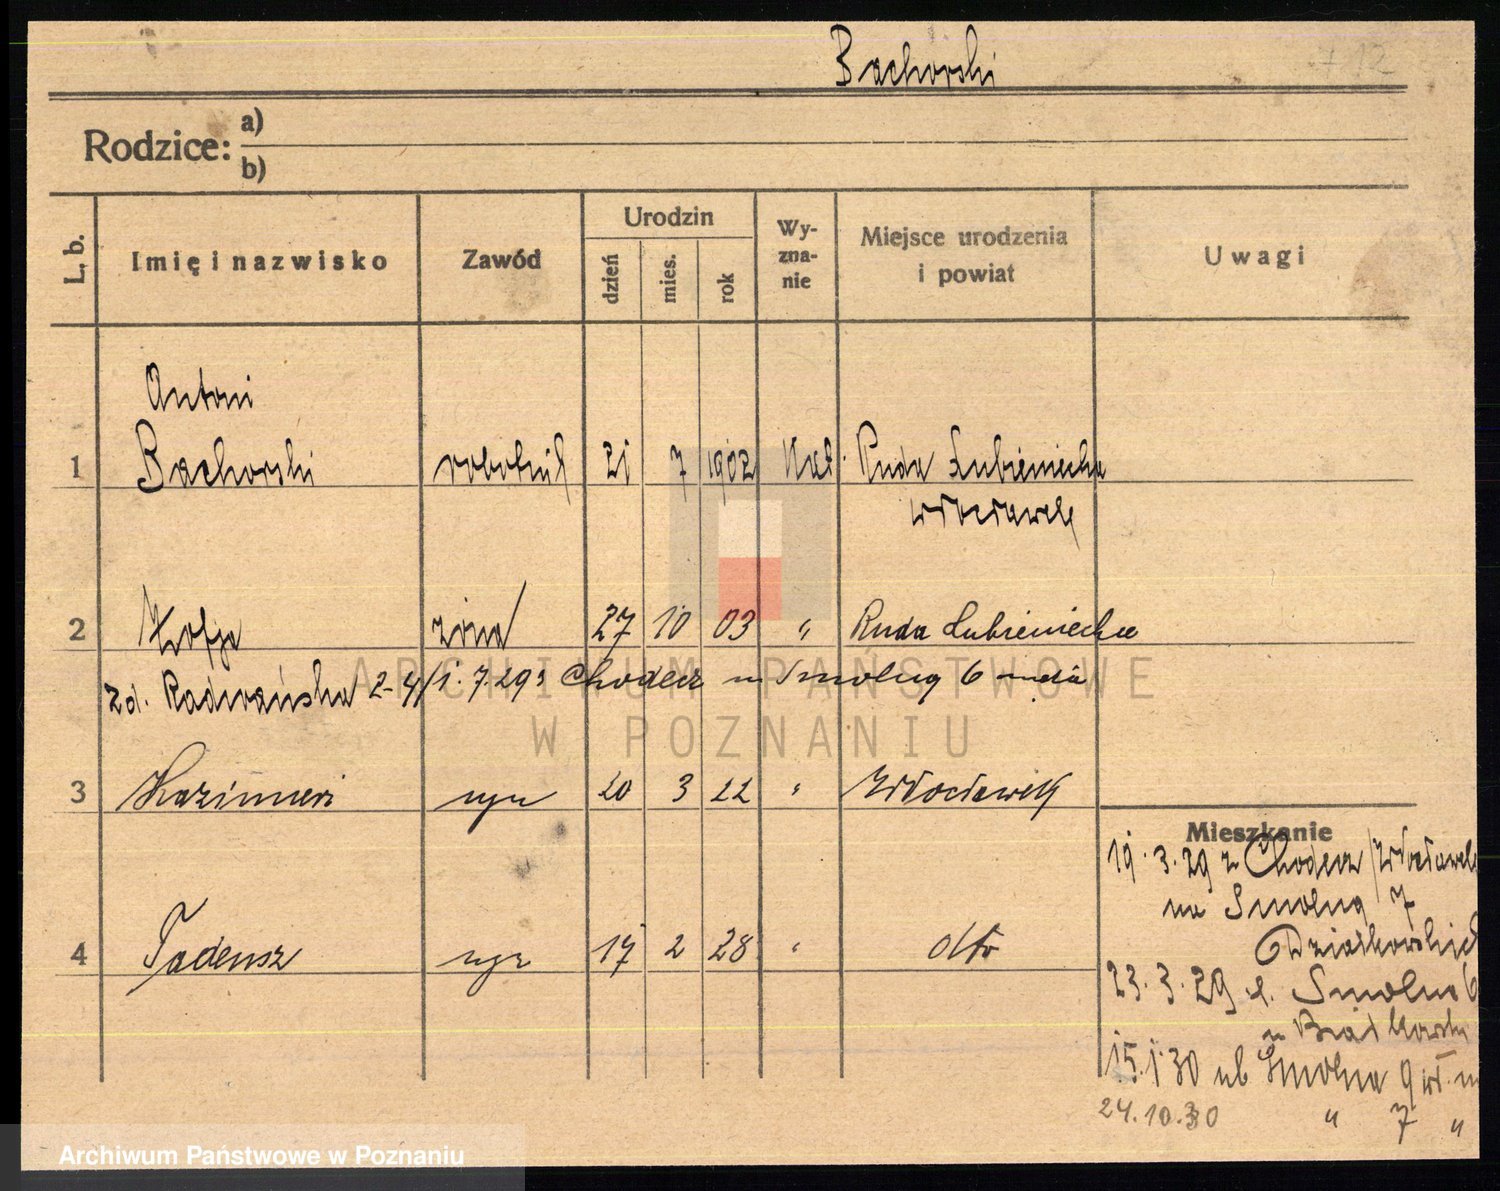 Bachorski
+ 12
Rodzice: a)
b)
L. b.
Imię i nazwisko
Zawód
Urodzin
dzień
mies.
rok
Wy-
zna-
nie
Miejsce urodzenia
i powiat
Uwagi
Antoni
1 Bachorski robotnik 21 7 1902 Kat. Ruda Lubieniecka
Włocławek
2 Zofja żona 27 10 03 " Ruda Lubieniecka
zd. Radwańska 2-4/1.7.29 z Chodecz Smolną 6
3 Kazimierz syn 20 3 22 " Włocławek
Mieszkanie
19.3.29 z Chodecz /Włocławek
na Smolną 7
4 Tadeusz syn 17 2 28 " dtto
23.3.29 Smolna 6
15.1.30 ul Smolna 9 wł. m
24.10.30 " 7 "
ARCHIWUM PAŃSTWOWE
W POZNANIU
Archiwum Państwowe w Poznaniu